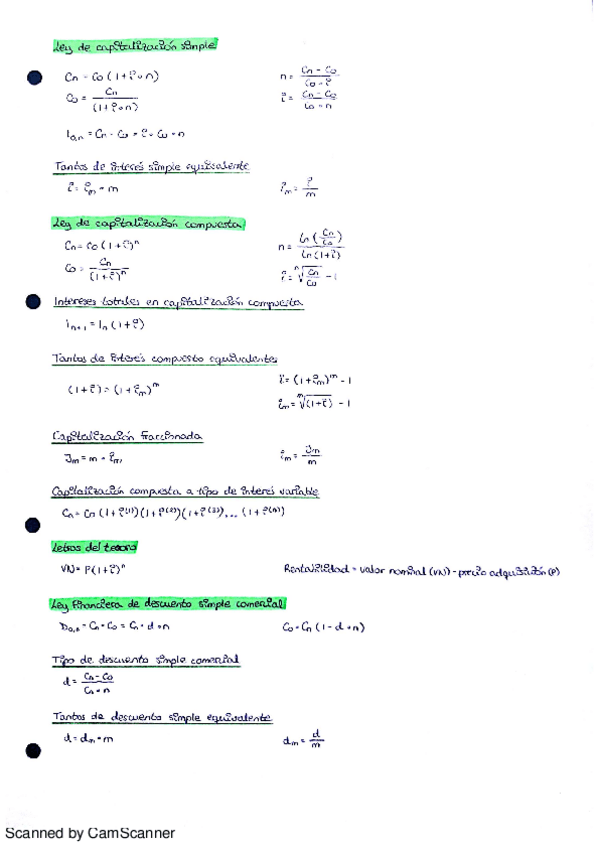 Ley de capitalización simple
Cn = Co (1 + i · n)
n = Cn - Co / Co · i
Co = Cn / (1 + i · n)
i = Cn - Co / Co · n
I o,n = Cn - Co = i · Co · n
Tantos de interés simple equivalente
i = im · m
im = i / m
Ley de capitalización compuesta
Cn = Co (1 + i)^n
n = Ln (Cn / Co) / Ln (1 + i)
Co = Cn / (1 + i)^n
i = ⁿ√(Cn / Co) - 1
Intereses totales en capitalización compuesta
i n+1 = In (1 + i)
Tantos de interés compuesto equivalentes
(1 + i) = (1 + im)^m
i = (1 + im)^m - 1
im = ᵐ√(1 + i) - 1
Capitalización fraccionada
Jm = m · im
im = Jm / m
Capitalización compuesta a tipo de interés variable
Cn = Co (1 + i⁽¹⁾) (1 + i⁽²⁾) (1 + i⁽³⁾) ... (1 + i⁽ⁿ⁾)
Letras del tesoro
VN = P (1 + i)^n
Rentabilidad = valor nominal (VN) - precio adquisición (P)
Ley financiera de descuento simple comercial
Do,n = Cn - Co = Cn · d · n
Co = Cn (1 - d · n)
Tipo de descuento simple comercial
d = Cn - Co / Cn · n
Tantos de descuento simple equivalente
d = dm · m
dm = d / m
Scanned by CamScanner